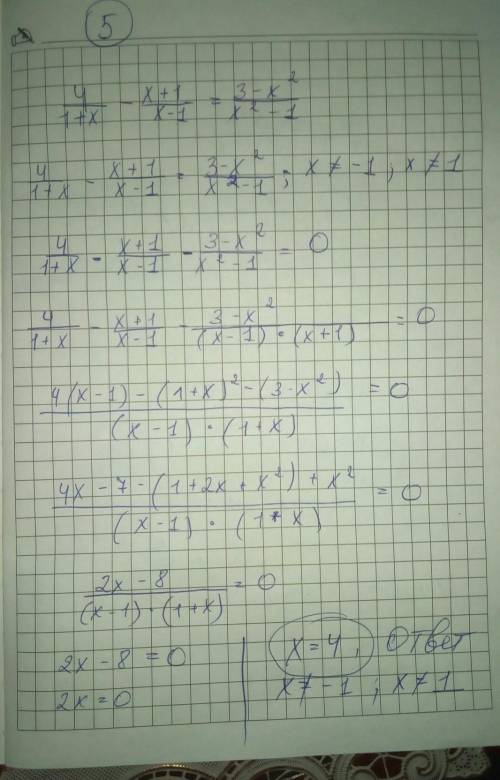 5
4/(1+x) - (x+1)/(x-1) = (3-x²)/(x²-1)
4/(1+x) - (x+1)/(x-1) = (3-x²)/(x²-1); x≠-1; x≠1
4/(1+x) - (x+1)/(x-1) - (3-x²)/(x²-1) = 0
4/(1+x) - (x+1)/(x-1) - (3-x²)/((x-1)·(x+1)) = 0
(4(x-1)-(1+x)²-(3-x²))/((x-1)·(1+x)) = 0
(4x-7-(1+2x+x²)+x²)/((x-1)·(1+x)) = 0
(2x-8)/((x-1)·(1+x)) = 0
2x-8=0
2x=0
x=4, Ответ
x≠-1; x≠1